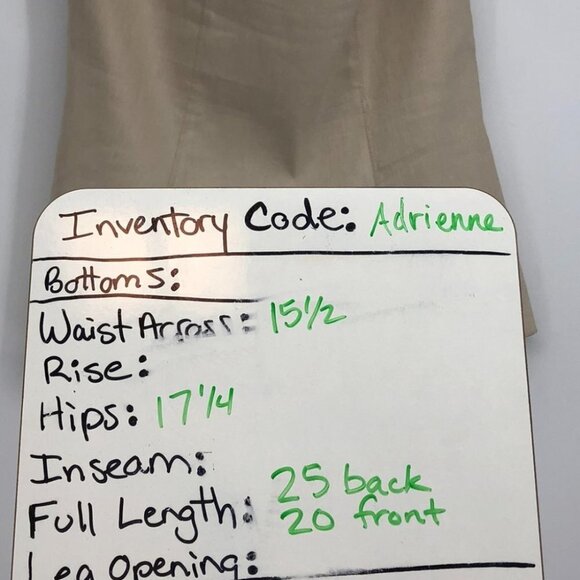 Inventory Code: Adrienne
Bottoms:
Waist Across: 15 1/2
Rise:
Hips: 17 1/4
Inseam:
25 back
Full Length: 20 front
Leg Opening: